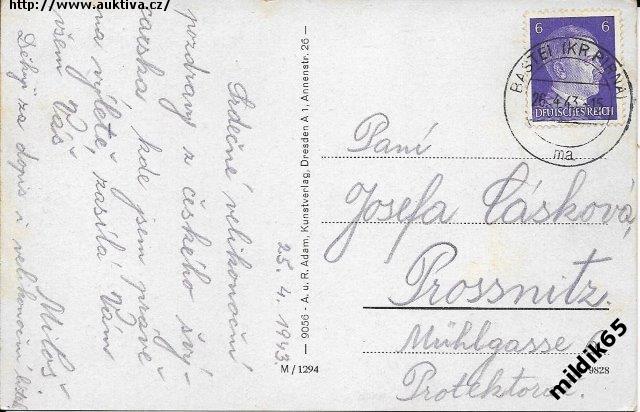 http://www.auktiva.cz/
25. 4. 1943.
Srdečné velikonoční
pozdravy z českého Švý-
carska kde jsem právě
na výletě, zasílá Vám
všem Váš
Miloš
Děkuji za dopis i velikonoční lístek
— 9056 - A. u. R. Adam, Kunstverlag, Dresden A 1, Annenstr. 26 —
M/1294
6 6
DEUTSCHES REICH
BASTEI (KR. PIRNA)
26.4.43.-15
ma
Paní
Josefa Čásková,
Prossnitz.
Mühlgasse
Protektorat
9828
mildik65